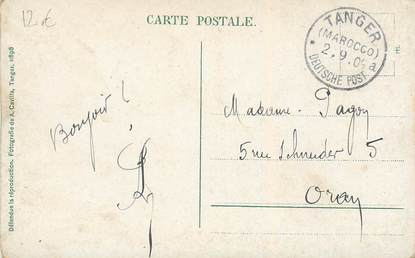 12 €
CARTE POSTALE.
TANGER
(MAROCCO)
2.9.0 a
DEUTSCHE POST.
Bonjour !
Madame Pagoy
5 rue Schneider 5
Oran
Défendue la réproduction. Fotografie de A. Cavilla, Tanger, 1898